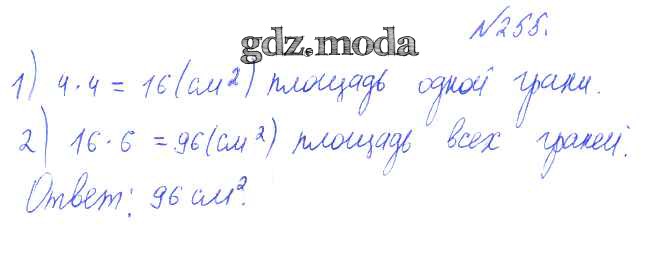 №255.
gdz.moda
1) 4·4 = 16 (см²) площадь одной грани.
2) 16·6 = 96 (см²) площадь всех граней.
Ответ: 96 см².